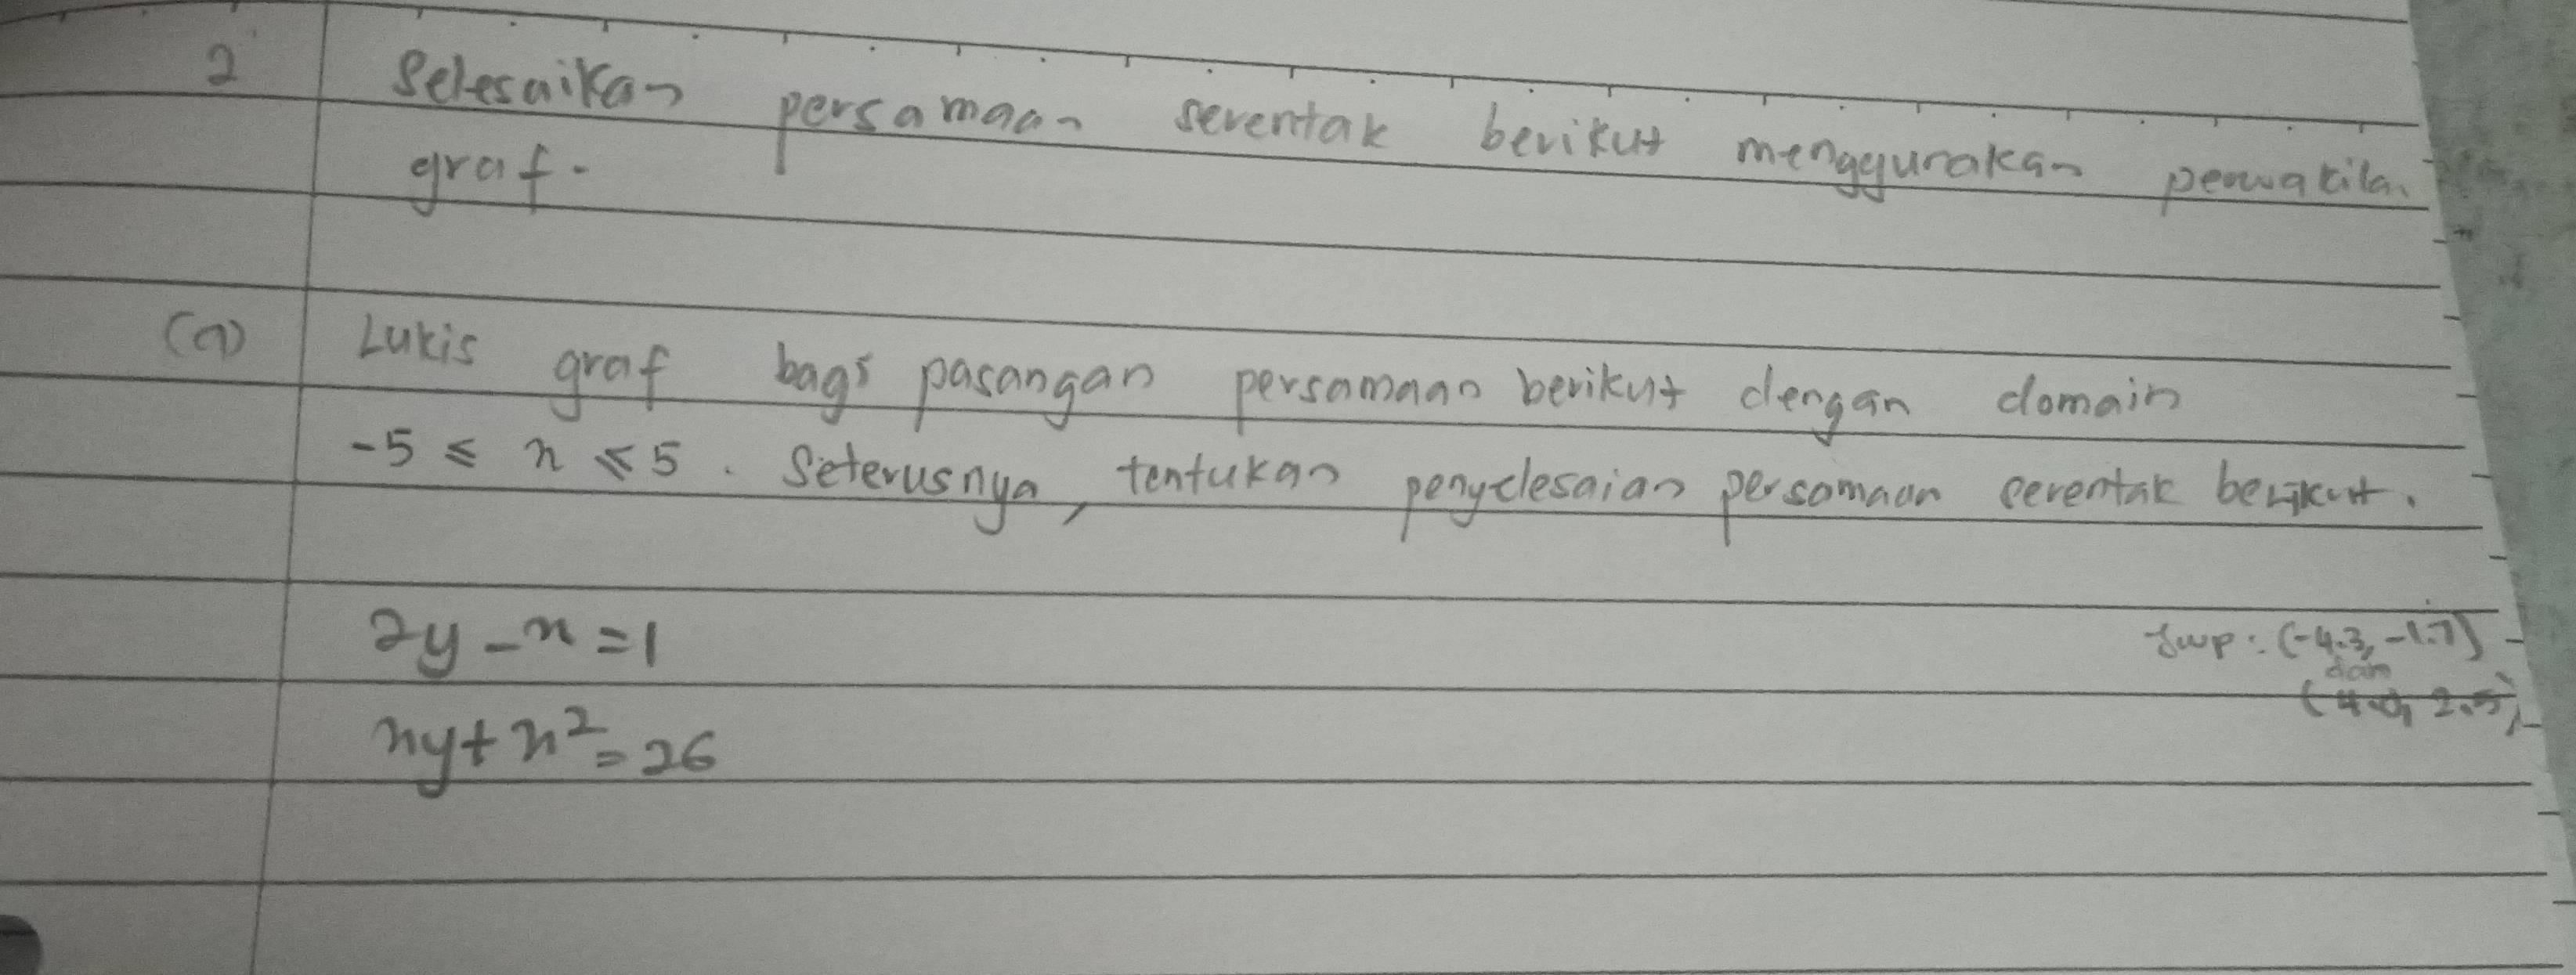 2 Selesaikan persamaan serentak berikut menggunakan perwakilan
graf.
(a) Lukis graf bagi pasangan persamaan berikut dengan domain
-5 ≤ x ≤ 5. Seterusnya, tentukan penyelesaian persamaan serentak berikut.
2y - x = 1
Jwp: (-4.3, -1.7)
dan
(4.0, 2.5)
xy + x² = 26